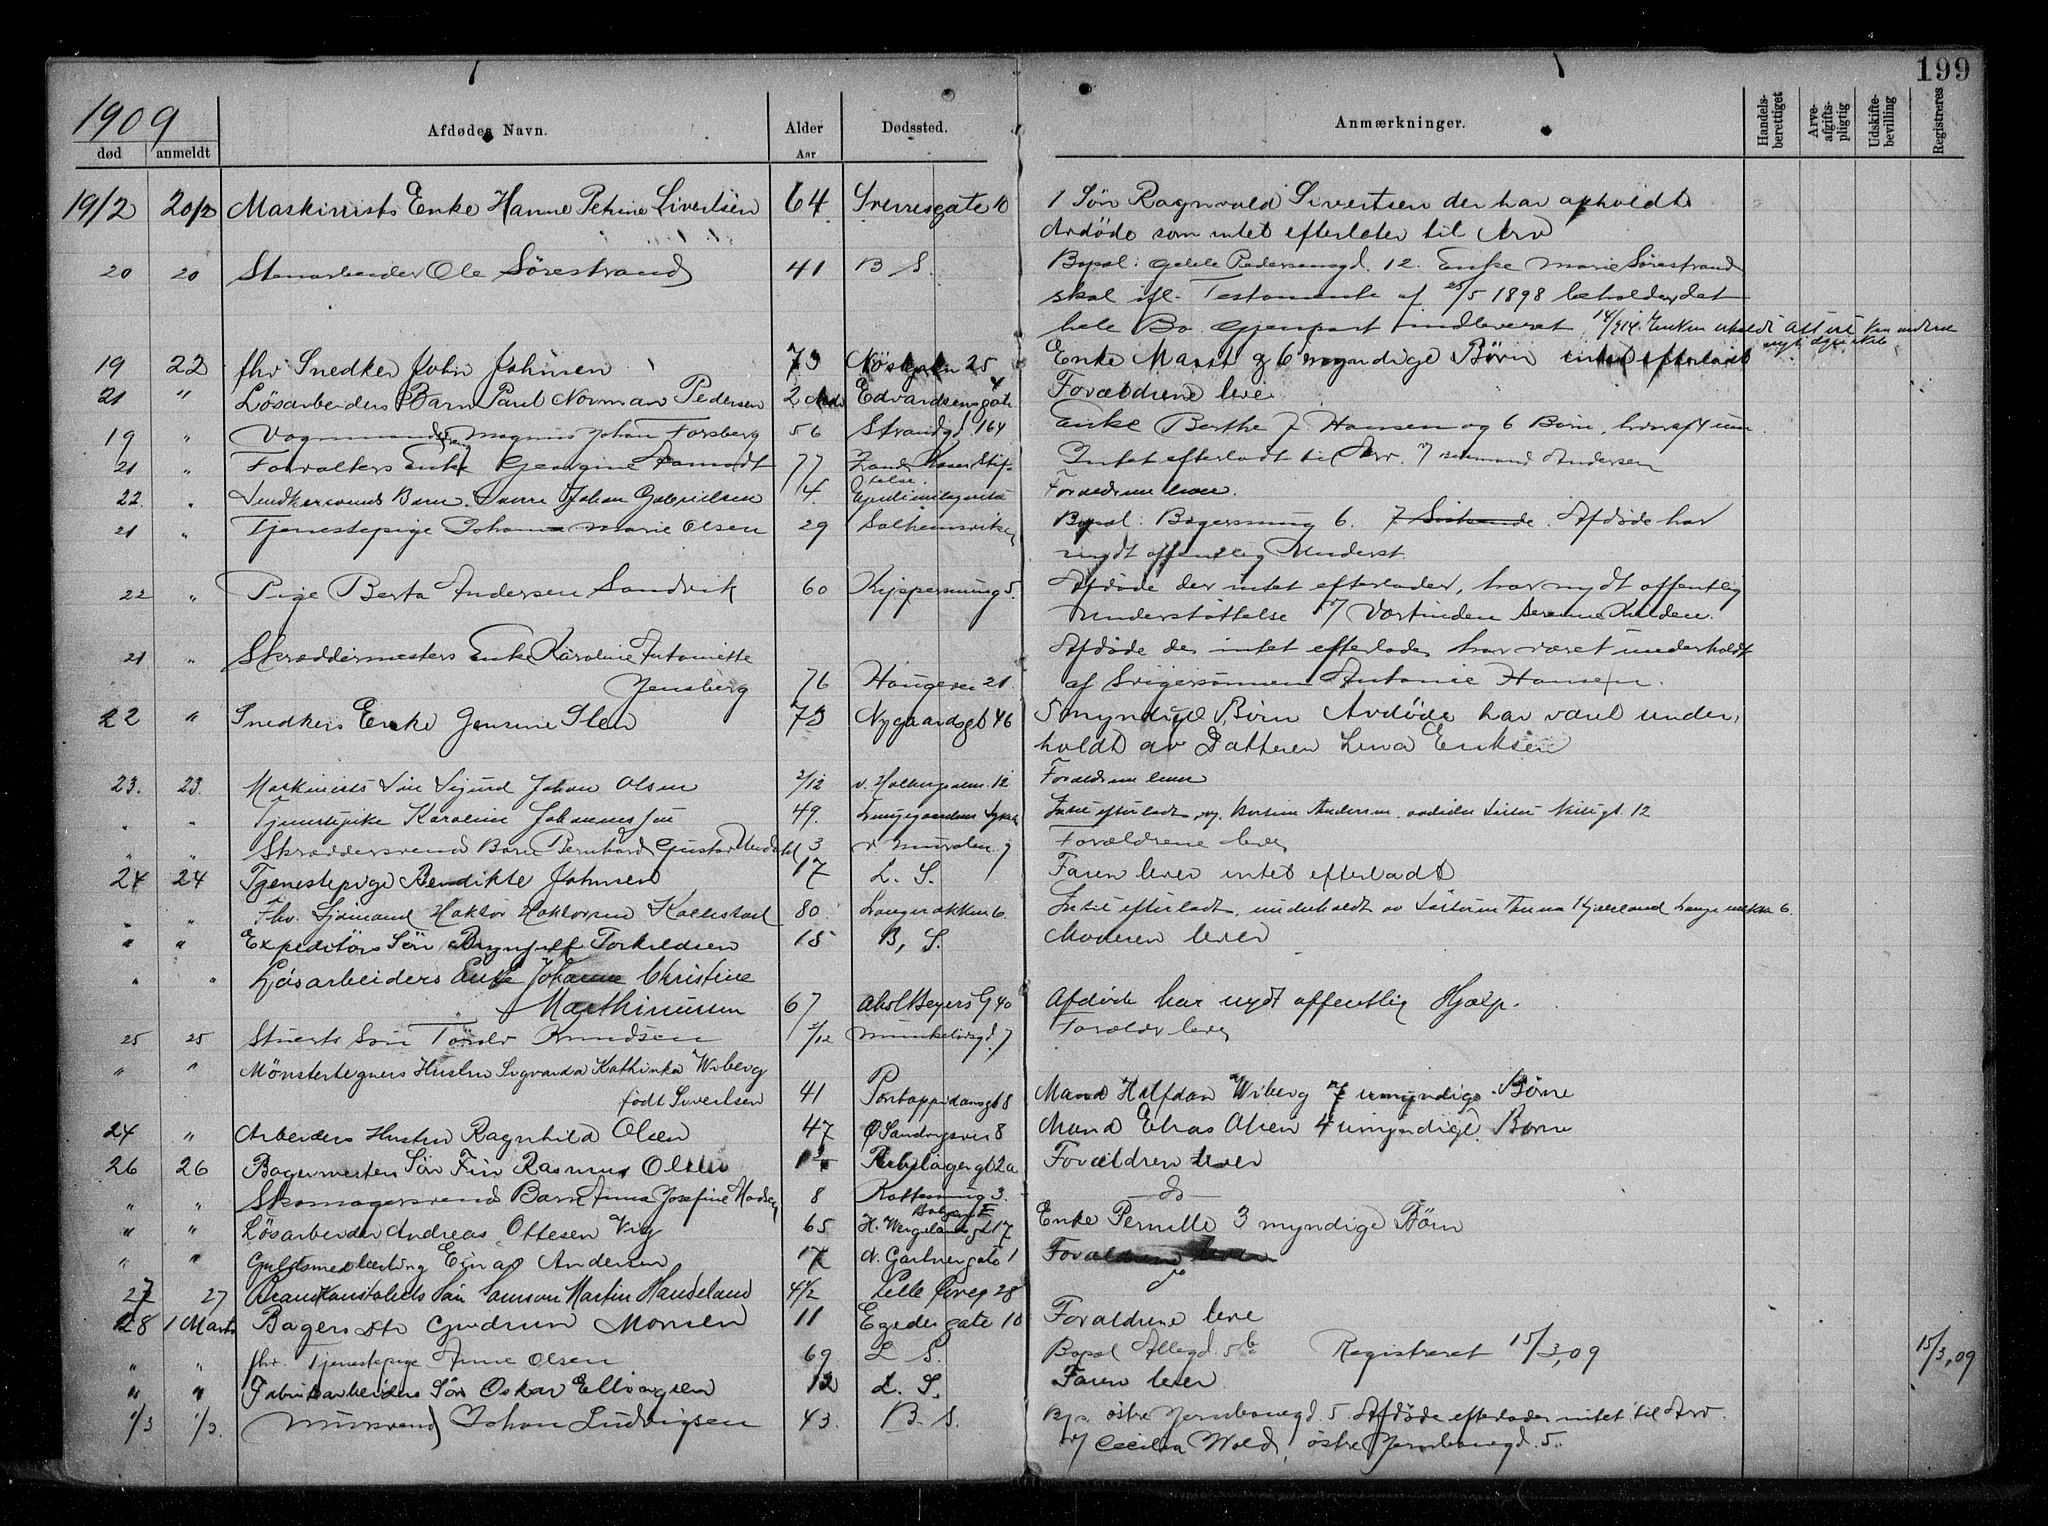 199
1909
død anmeldt Afdødes Navn. Alder Aar Dødssted. Anmærkninger. Handels-berettiget Arve-afgifts-pligtig Udskifte-bevilling Registreres
19/2 20/2 Maskinists Enke Hanne Petrine Sivertsen 64 Sverresgate 10 1 Søn Ragnvald Sivertsen der har opholdt
Avdøde som intet efterlater til Arv
20 20 Stenarbeider Ole Sørestrand 41 B S. Bopæl: Pedersensgd. 12. Enke Marie Sørestrand
skal ifl. Testamente af 25/5 1898 beholde det
hele Bo. Gjenpart indleveret. 14/9 14. Enken
19 22 fhv Snedker John Johnsen 73 25 Enke Marit & 6 myndige Børn intet efterladt
21 " Løsarbeiders Barn Paul Norman Pedersen 2 Edvardsensgate 4 Forældrene leve
19 " Vognmand Magnus Johan Forsberg 56 Strandgd 164 Enke Berthe f Hansen og 6 Børn, hvoraf 4 um
21 " Forvalters Enke Georgine Aamodt 77 Stiftelse. Intet efterladt til Arv. v/ Andersen
22. " Snedkersvends Barn Johan Gabrielsen 4. Forældrene lever.
21 " Tjenestepige Johanne Marie Olsen 29 Solheimsviken Bopæl: Bagersmug 6. 7 Søskende. Afdøde har
nydt offentlig Underst.
22 " Pige Berta Andersen Sandvik 60 Kippersmug 5. Afdøde der intet efterlader, har nydt offentlig
Understøttelse v/ Værtinden
21 " Skræddermesters Enke Karoline Antoinette Afdøde der intet efterlader har været underholdt
Jensberg 76 Haugevei 21. af Svigersønnen Antonie Hansen.
22 " Snedkers Enke Jensine Sten 73 Nygaardsgt 46 5 myndige Børn Avdøde har været under-
holdt av Datteren Lina Eriksen
23. 23. Maskinists Søn Sigurd Johan Olsen 2/12 v. Holbergsalm. 12 Forældrene lever
" " Tjenestepike Karoline Johannessen 49. Lungegaardens Sykeh. Intet efterladt, Andersen, 12
" " Skræddersvends Barn Bernhard Gustav 3 v. Muralm. 7 Forældrene lever
24 24 Tjenestepige Bendikte Johnsen 17 L. S. Faren lever intet efterladt
" " Fhv. Sjømand Haktor Haktorsen Kallestad 80. Langerækken 6. Intet efterladt, underholdt av Datteren Anna Kjelland Langerækken 6.
" " Expeditørs Søn Brynjulf Torkildsen 15 B. S. Moderen lever
" " Løsarbeiders Enke Johanne Christine
Marthinussen 67 Abs Beyers G 40 Afdøde har nydt offentlig Hjælp.
25 25 Stuerts Søn Knudsen /12 Munkelivsgd. 7 Forældr lever
" " Mønstertegners Hustru Sigvarda Kathinka Wiberg
født Sivertsen 41 Pontoppidansgt 8 Mand Halfdan Wiberg 7 umyndige Børn
24 " Arbeiders Hustru Ragnhild Olsen 47 Ø Sandvigsvei 8 Mand Elias Olsen 4 umyndige Børn
26 26 Bagermesters Søn Fin Rasmus Olsen gt 2a Forældren lever
" " Skomagersvends Barn Anna Josefine Madsen 8 Kattesmug 3. do
" " Løsarbeider Andreas Ottesen Vig 65 H. Wergelandsgt 17 Enke Pernille 3 myndige Børn
" " Guldsmedlærling Einar Andersen 17 N. Gartnergate 1 Forældrene lever
27 27 Brandkonstabels Søn Samson Martin Handeland 4 1/2 Lille 28 do
28 1 Marts Bagers dtr Gudrun Monsen 11 Egedesgate 10 Forældrene leve
" " fhv. Tjenestepige Anne Olsen 69 L S. Bopæl Allegd. 5b Registreret 15/3, 09 15/3, 09
" " Fabrikarbeiders Søn Oskar Ellingsen 12 L. S. Faren lever
1/3 1/3. Mursvend Johan Ludvigsen 43. B. S. Bp. østre Jernbanegd. 5. Afdøde efterlader intet til Arv.
v/ Cecilia Wold, østre Jernbanegd. 5.